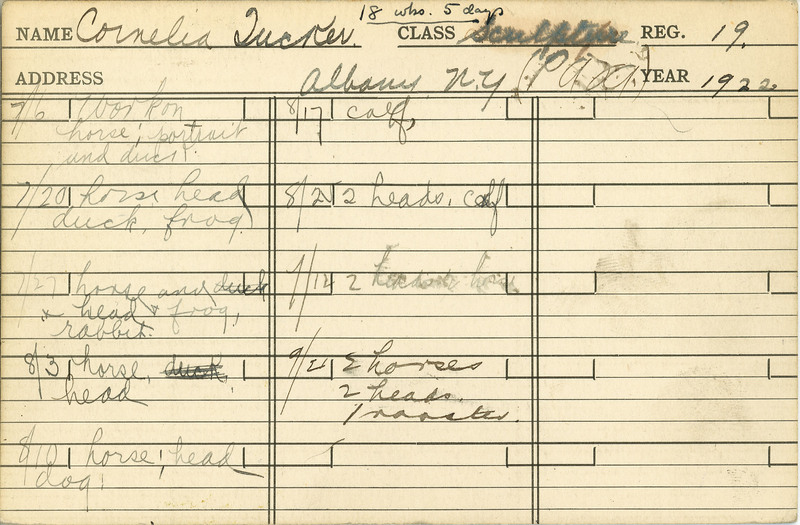 18 wks. 5 days
NAME Cornelia Tucker. CLASS Sculpture REG. 19.
ADDRESS Albany, N.Y. YEAR 1922
7/6 Work on
horse; portrait
and duck.
7/20 horse head
duck, frog
7/27 horse and duck
head frog,
rabbit.
8/3 horse, duck,
head
8/10 horse, head
dog
8/17 calf,
8/25 2 heads, calf
9/12 2
9/21 2 horses
2 heads
1 rooster.